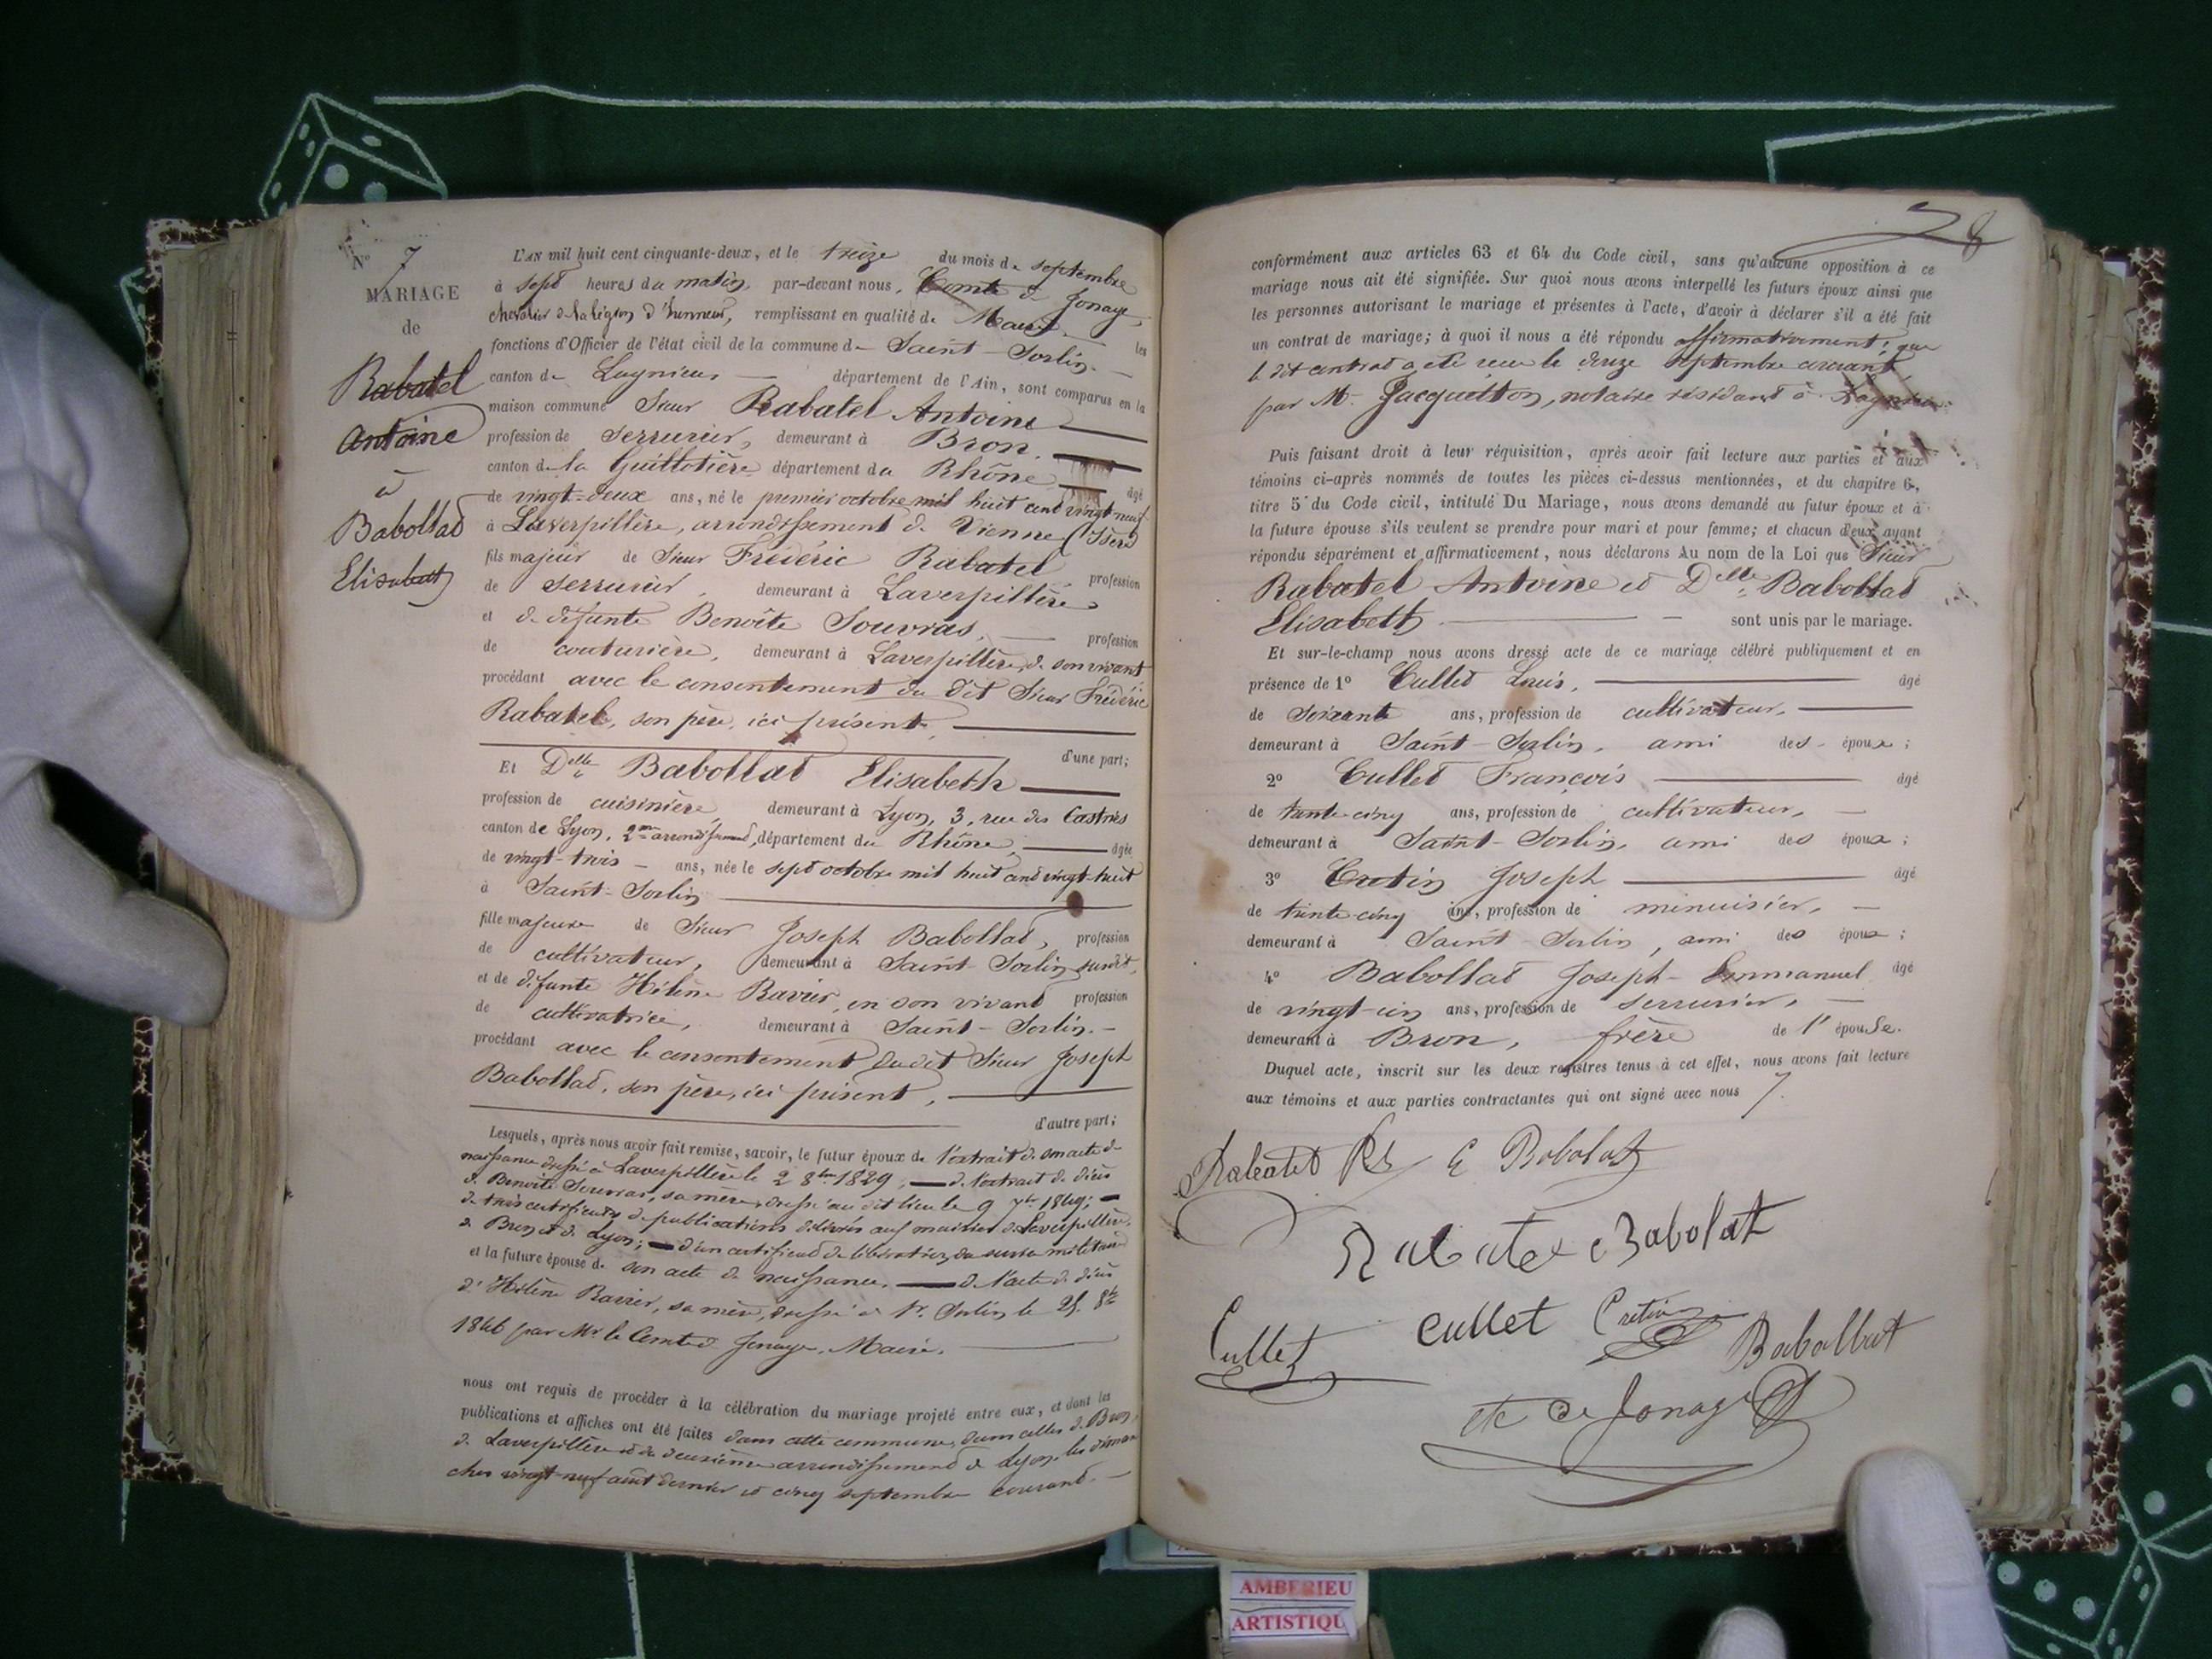 N° 7
MARIAGE
de
Rabatel
Antoine
à
Babollat
Elisabeth
L'AN mil huit cent cinquante-deux, et le treize du mois de septembre
à sept heures du matin, par-devant nous, Comte de Jonage,
chevalier de la légion d'honneur, remplissant en qualité de Maire les
fonctions d'Officier de l'état civil de la commune de Saint-Sorlin
canton de Lagnieu, département de l'Ain, sont comparus en la
maison commune Sieur Rabatel Antoine
profession de serrurier, demeurant à Bron
canton de la Guillotière département du Rhône âgé
de vingt-deux ans, né le premier octobre mil huit cent vingt-neuf
à Laverpillière, arrondissement de Vienne (Isère)
fils majeur de Sieur Frédéric Rabatel profession
de serrurier, demeurant à Laverpillière
et de défunte Benoîte Souvras, profession
de couturière, demeurant à Laverpillière, de son vivant
procédant avec le consentement du dit Sieur Frédéric
Rabatel, son père, ici présent,
d'une part;
Et Delle Babollat Elisabeth
profession de cuisinière demeurant à Lyon, 3, rue des Castries
canton de Lyon, 2me arrondissement, département du Rhône, âgée
de vingt-trois ans, née le sept octobre mil huit cent vingt-huit
à Saint-Sorlin
fille majeure de Sieur Joseph Babollat, profession
de cultivateur, demeurant à Saint-Sorlin susdit,
et de défunte Hélène Ravier, en son vivant profession
de cultivatrice, demeurant à Saint-Sorlin.
procédant avec le consentement dudit Sieur Joseph
Babollat, son père, ici présent,
d'autre part;
Lesquels, après nous avoir fait remise, savoir, le futur époux de l'extrait de son acte de
naissance dressé à Laverpillière le 2 8bre 1829; de l'extrait de décès
de Benoîte Souvras, sa mère, dressé au dit lieu le 9 7bre 1849;
de trois certificats de publications délivrés aux mairies de Laverpillière,
de Bron et de Lyon; d'un certificat de libération du service militaire
et la future épouse de son acte de naissance, de l'acte de décès
d'Hélène Ravier, sa mère, dressé à St. Sorlin le 25 8bre
1846 par Mr le Comte de Jonage, Maire.
nous ont requis de procéder à la célébration du mariage projeté entre eux, et dont les
publications et affiches ont été faites dans cette commune, dans celles de Bron,
de Laverpillière et du deuxième arrondissement de Lyon, les diman
ches vingt-neuf août dernier et cinq septembre courant.
8
conformément aux articles 63 et 64 du Code civil, sans qu'aucune opposition à ce
mariage nous ait été signifiée. Sur quoi nous avons interpellé les futurs époux ainsi que
les personnes autorisant le mariage et présentes à l'acte, d'avoir à déclarer s'il a été fait
un contrat de mariage; à quoi il nous a été répondu affirmativement; que
le dit contrat a été reçu le douze septembre courant
par Me Jacquetton, notaire résidant à Lagnieu.
Puis faisant droit à leur réquisition, après avoir fait lecture aux parties et aux
témoins ci-après nommés de toutes les pièces ci-dessus mentionnées, et du chapitre 6,
titre 5 du Code civil, intitulé Du Mariage, nous avons demandé au futur époux et à
la future épouse s'ils veulent se prendre pour mari et pour femme; et chacun d'eux ayant
répondu séparément et affirmativement, nous déclarons Au nom de la Loi que Sieur
Rabatel Antoine et Delle Babollat
Elisabeth sont unis par le mariage.
Et sur-le-champ nous avons dressé acte de ce mariage célébré publiquement et en
présence de 1° Cullet Louis, âgé
de soixante ans, profession de cultivateur,
demeurant à Saint-Sorlin, ami des époux;
2° Cullet François âgé
de trente-cinq ans, profession de cultivateur,
demeurant à Saint-Sorlin, ami des époux;
3° Cretin Joseph âgé
de trente-cinq ans, profession de menuisier,
demeurant à Saint-Sorlin, ami des époux;
4° Babollat Joseph-Emmanuel âgé
de vingt-un ans, profession de serrurier,
demeurant à Bron, frère de l'épouse.
Duquel acte, inscrit sur les deux registres tenus à cet effet, nous avons fait lecture
aux témoins et aux parties contractantes qui ont signé avec nous
E Babolat
Rabatel Babolat
Cullet cullet Cretin Baballut
cte de Jonage
AMBERIEU
ARTISTIQU